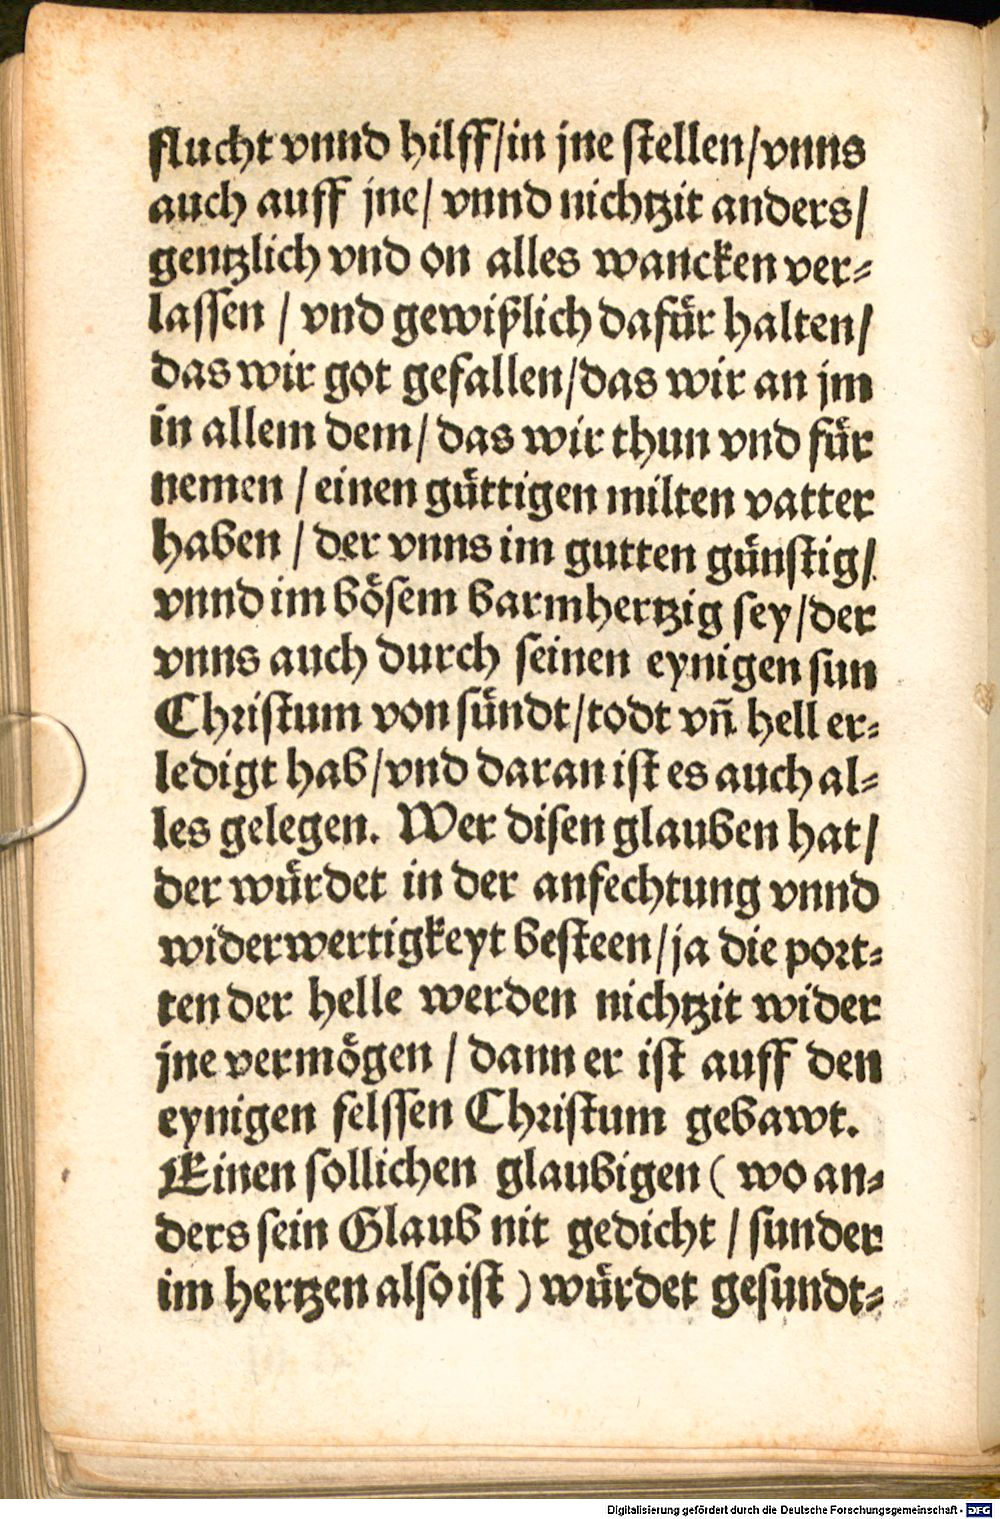 flucht vnnd hilff/in jne stellen/vnns
auch auff jne/ vnnd nichtzit anders/
gentzlich vnd on alles wancken ver⸗
lassen / vnd gewißlich dafuͤr halten/
das wir got gefallen/das wir an jm
in allem dem/ das wir thun vnd fuͤr
nemen / einen guͤttigen milten vatter
haben / der vnns im gutten guͤnstig/
vnnd im boͤsem barmhertzig sey/der
vnns auch durch seinen eynigen sun
Christum von suͤndt/todt vñ hell er⸗
ledigt hab/vnd daran ist es auch al⸗
les gelegen. Wer disen glauben hat/
der wuͤrdet in der anfechtung vnnd
widerwertigkeyt besteen/ja die port⸗
ten der helle werden nichtzit wider
jne vermoͤgen / dann er ist auff den
eynigen felssen Christum gebawt.
Einen sollichen glaubigen ( wo an⸗
ders sein Glaub nit gedicht / sunder
im hertzen also ist ) wuͤrdet gesundt⸗
Digitalisierung gefördert durch die Deutsche Forschungsgemeinschaft - DFG